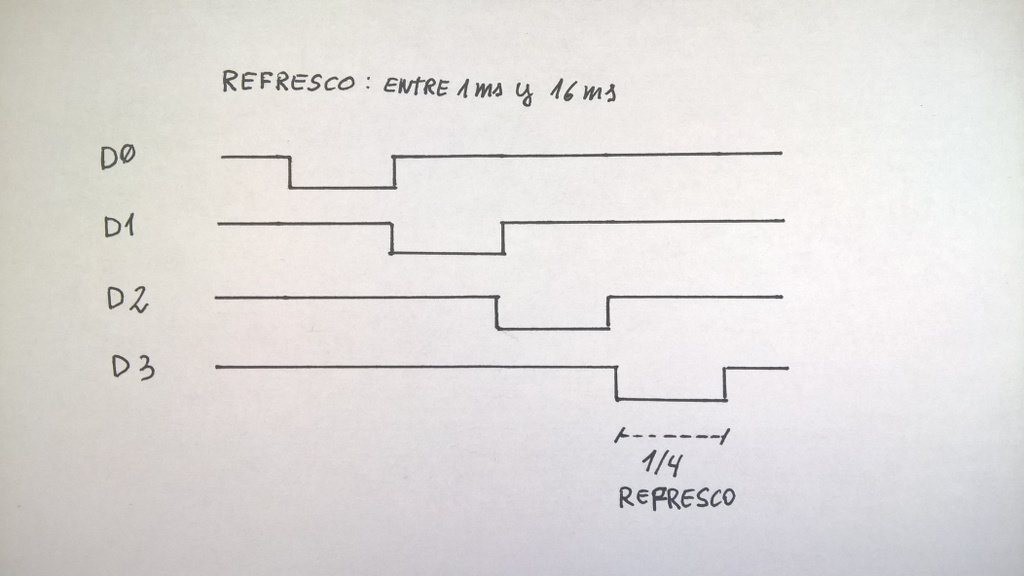 REFRESCO: ENTRE 1ms y 16ms
D0
D1
D2
D3
1/4
REFRESCO